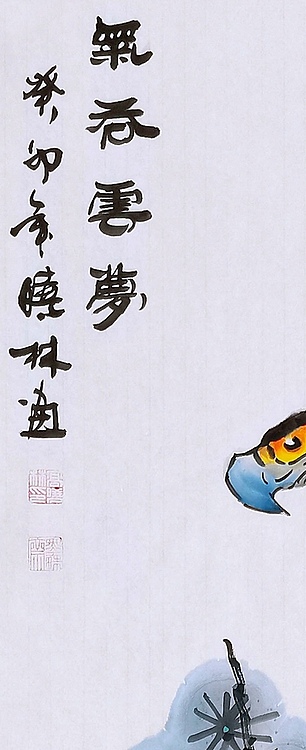 氣吞雲夢
癸卯年曉林畫